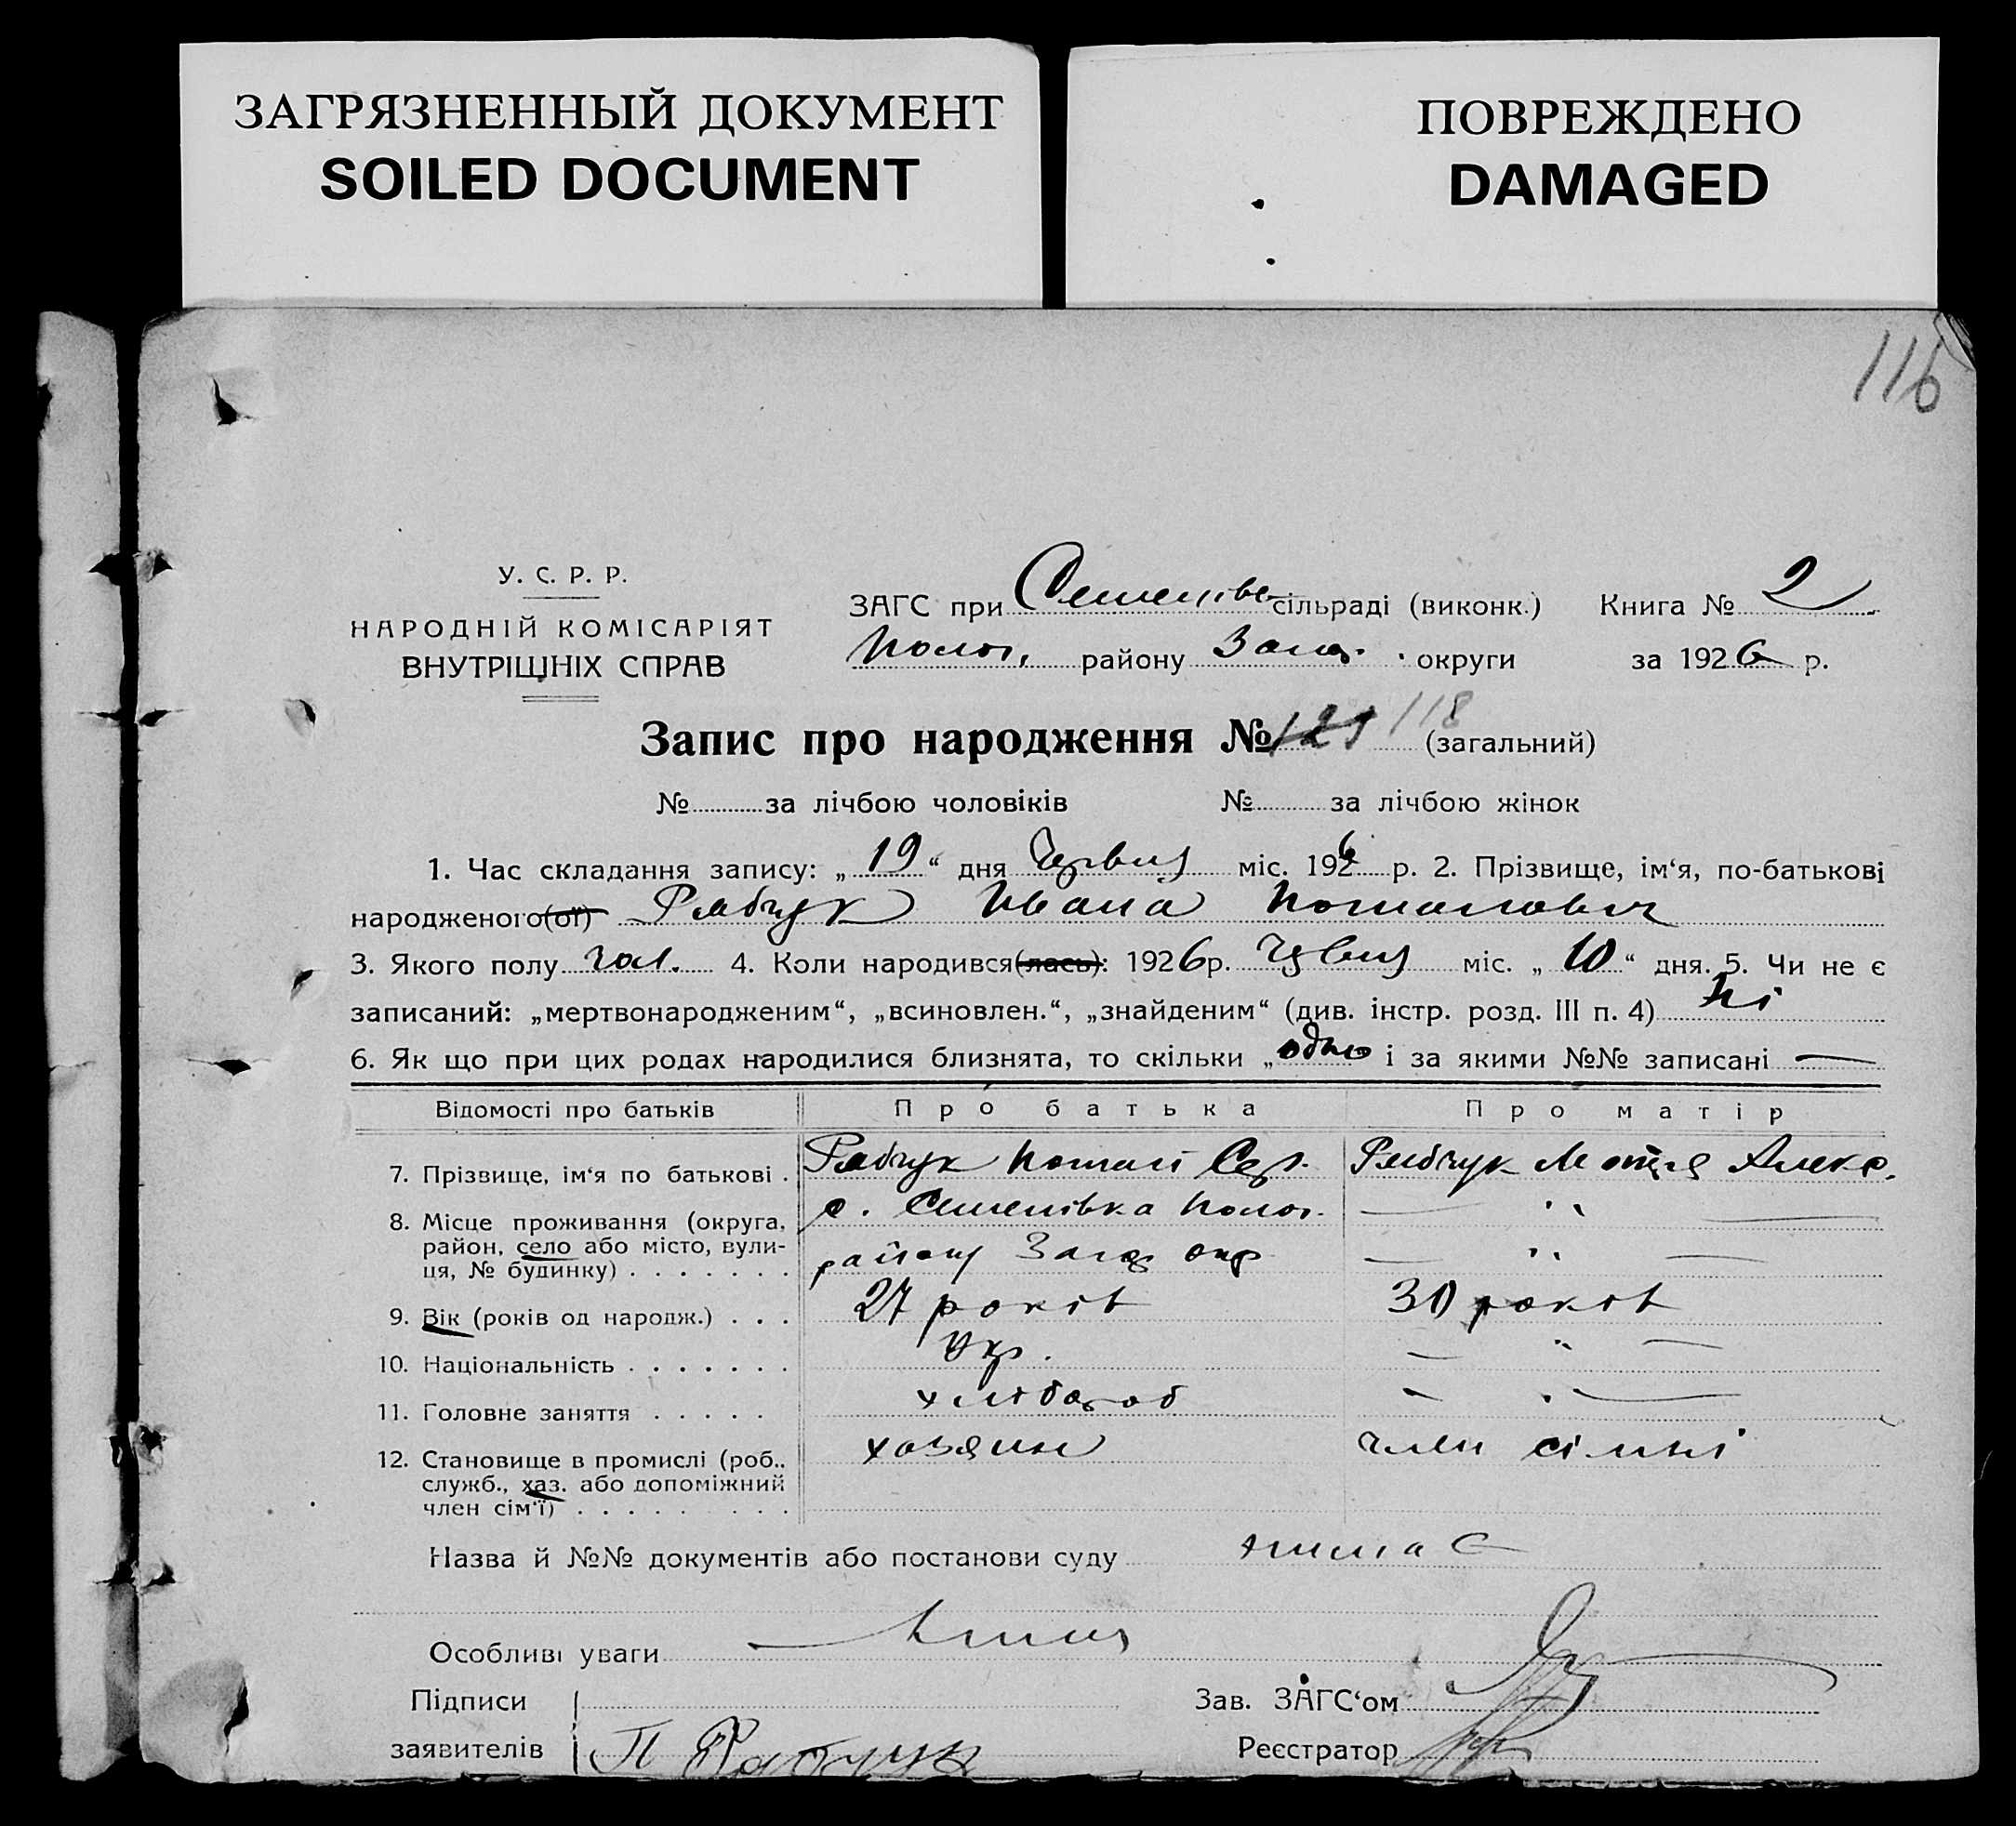 ЗАГРЯЗНЕННЫЙ ДОКУМЕНТ
SOILED DOCUMENT
ПОВРЕЖДЕНО
DAMAGED
116
У. С. Р. Р.
НАРОДНІЙ КОМІСАРІЯТ
ВНУТРІШНІХ СПРАВ
ЗАГС при Семенівс сільраді (виконк.) Книга № 2
Полог. району Запор. округи за 1926 р.
Запис про народження № 121 118 (загальний)
№ за лічбою чоловіків № за лічбою жінок
1. Час складання запису: „19“ дня Червня міс. 1926 р. 2. Прізвище, ім‘я, по-батькові
народженого(ої) Рябчук Ивана Потапович
3. Якого полу чол. 4. Коли народився(лась): 1926р. Червня міс. „10“ дня. 5. Чи не є
записаний: „мертвонародженим“, „всиновлен.“, „знайденим“ (див. інстр. розд. III п. 4) Ні
6. Як що при цих родах народилися близнята, то скільки „одно і за якими №№ записані —
Відомості про батьків Про батька Про матір
7. Прізвище, ім‘я по батькові . Рябчук Потап Сер. Рябчук Мотря Алекс.
8. Місце проживання (округа, с. Семенівка Полог. — '' —
район, село або місто, вули- району Запор окр — '' —
ця, № будинку) . . . . . . .
9. Вік (років од народж.) . . . 27 років 30 років
10. Національність . . . . . . . Укр. — " —
11. Головне заняття . . . . . хлібороб — " —
12. Становище в промислі (роб., хозяин член сімні
служб., хаз. або допоміжний
член сім‘ї) . . . . . . . . .
Назва й №№ документів або постанови суду нима є
Особливі уваги — Нима
Підписи Зав. ЗАГС‘ом
заявителів П Рабчук Реєстратор